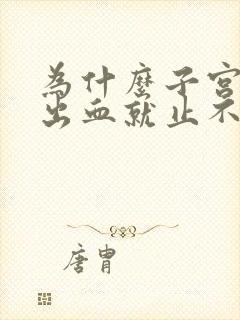 為什麼子宮
出血就止不
唐胄